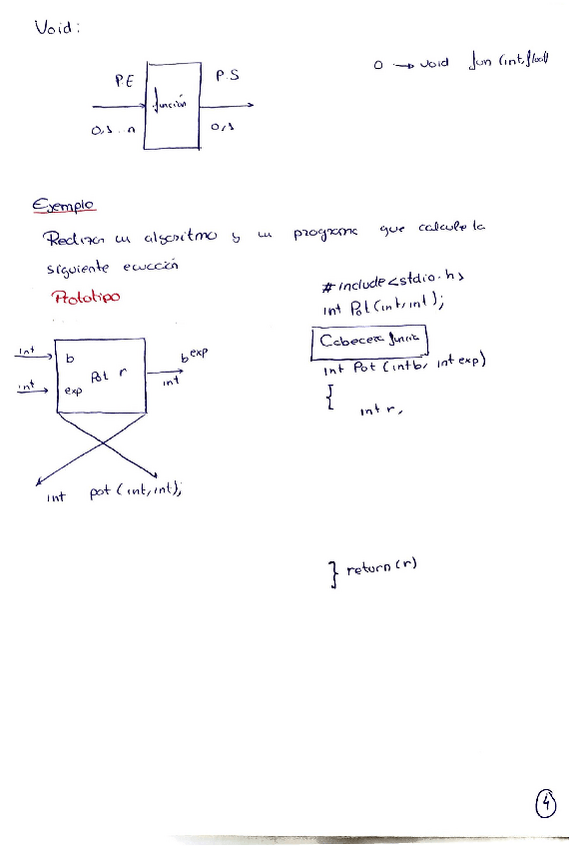 Void:
P.E
P.S
0 → void fun (int, float)
función
0,1..n
0,1
Ejemplo
Realizar un algoritmo y un programa que calcule la
siguiente ecuación
Prototipo
#include <stdio.h>
int Pot(int,int);
Cabecera función
int Pot (int b, int exp)
{
int r,
int
b
b^exp
Pot r
int
exp
int
int pot (int,int);
} return(r)
4